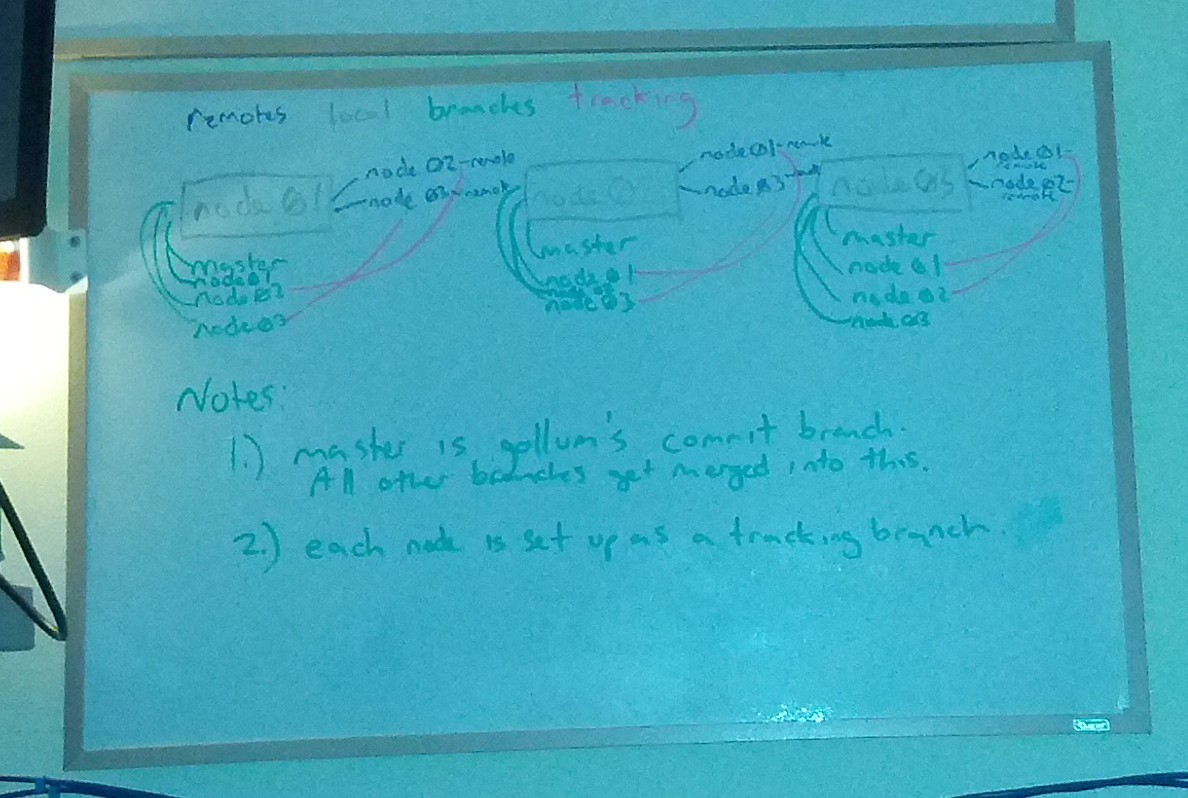 remotes local branches tracking
node 02-remote
node 03-remote
node 01
master
node 01
node 02
node 03
node 01-remote
node 03-
node
master
node 01
node 03
node 01-
remote
node 02-
remote
node 03
master
node 01
node 02
node 03
Notes:
1.) master is gollum's commit branch.
All other branches get merged into this.
2.) each node is set up as a tracking branch.